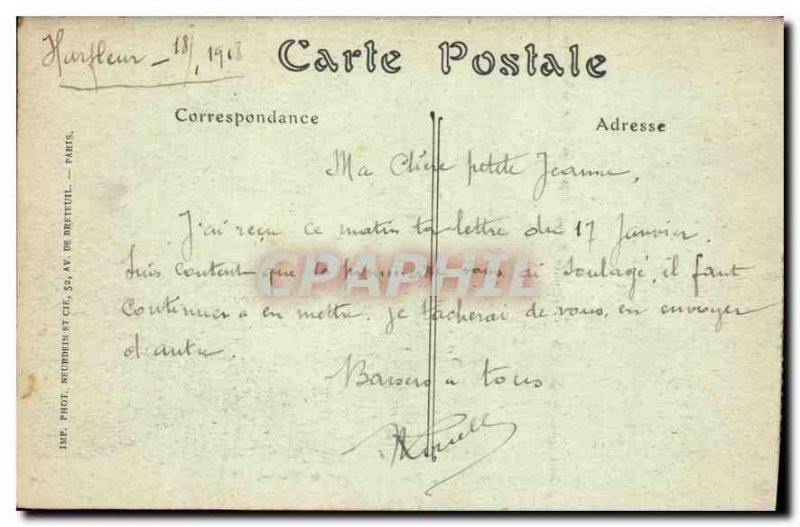 Harfleur - 18/1 1918
Carte Postale
Correspondance
Adresse
Ma Chère petite Jeanne,
J'ai reçu ce matin ta lettre du 17 Janvier.
Suis content que la pommade vous ai soulagé, il faut
Continuer a en mettre. Je tacherai de vous en envoyer
d'autre.
Baisers à tous
IMP. PHOT. NEURDEIN ET CIE, 52, AV. DE BRETEUIL. — PARIS.
CPAPHIL